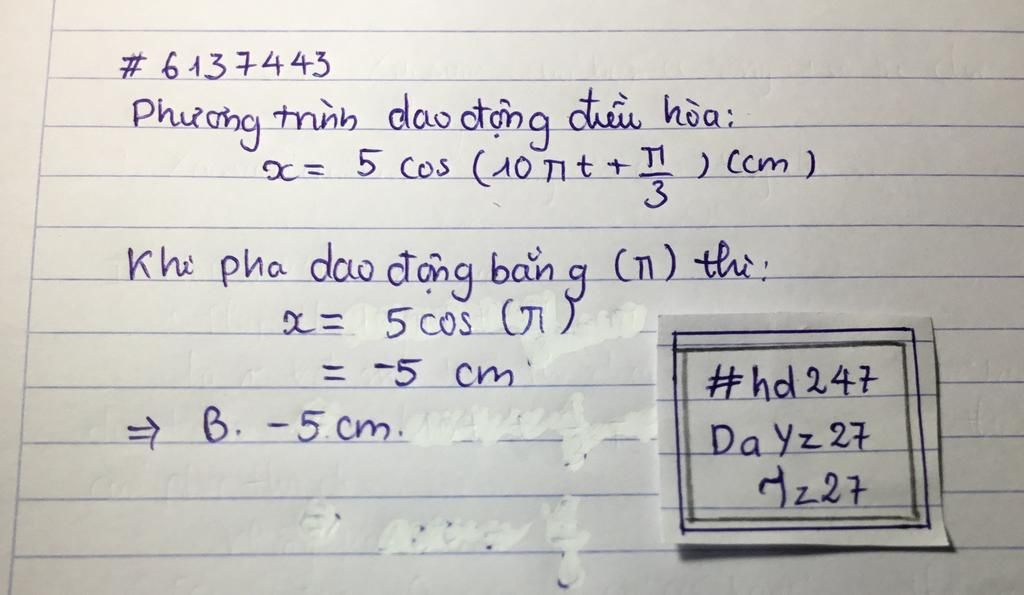 # 6137443
Phương trình dao động điều hòa:
x = 5 cos (10πt + π/3) (cm)
Khi pha dao động bằng (π) thì:
x = 5 cos (π)
= -5 cm
⇒ B. -5 cm.
#hd247
DaYz27
z27